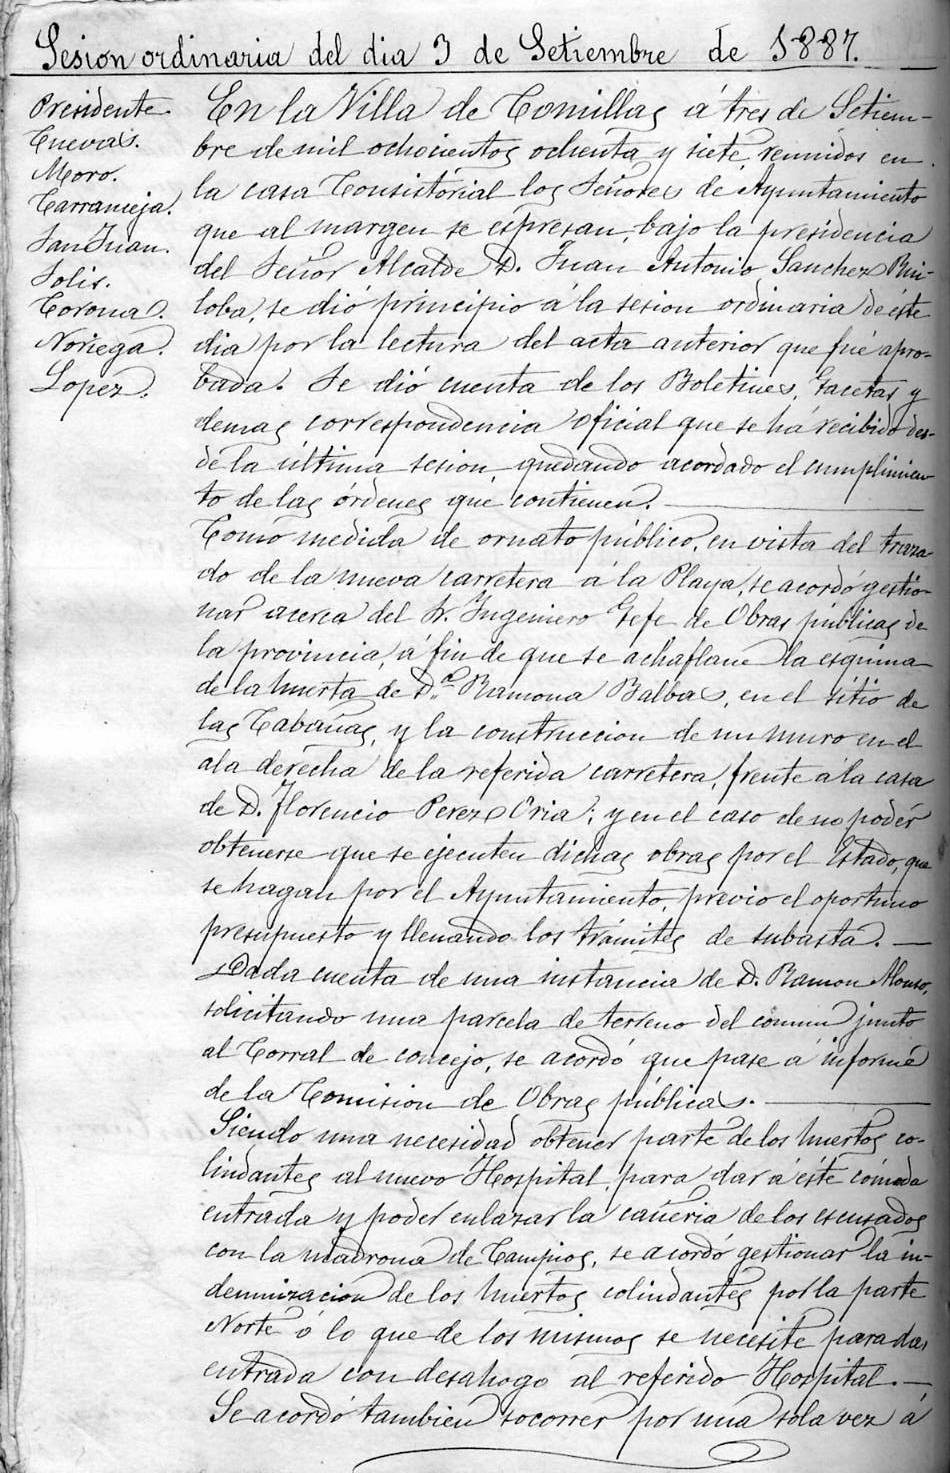 Sesion ordinaria del dia 3 de Setiembre de 1887.
Presidente
Cuevas.
Moro.
Tarramieja.
San Juan.
Solis.
Corona.
Noriega.
Lopez.
En la Villa de Comillas á tres de Setiem-
bre de mil ochocientos ochenta y siete, reunidos en
la casa Consistorial los Señores de Ayuntamiento
que al margen se espresan, bajo la presidencia
del Señor Alcalde D. Juan Antonio Sanchez Rui-
loba, se dió principio á la sesion ordinaria de éste
dia por la lectura del acta anterior que fué apro-
bada. Se dió cuenta de los Boletines, Gacetas y
demas correspondencia oficial que se há recibido des-
de la última sesion, quedando acordado el cumplimien-
to de las órdenes que contienen.
Como medida de ornato público, en vista del traza-
do de la nueva carretera á la Playa, se acordó gestio-
nar acerca del Sr. Ingeniero Gefe de Obras públicas de
la provincia, á fin de que se achaflane la esquina
de la huerta de D.ª Ramona Balbas, en el sitio de
las Cabañas, y la construccion de un muro en el
ala derecha de la referida carretera, frente á la casa
de D. Florencio Perez Cria; y en el caso de no poder
obtenerse que se ejecuten dichas obras por el Estado, que
se hagan por el Ayuntamiento, previo el oportuno
presupuesto y llenando los trámites de subasta.
Dada cuenta de una instancia de D. Ramon Alonso,
solicitando una parcela de terreno del comun junto
al Corral de concejo, se acordó que pase á informe
de la Comision de Obras públicas.
Siendo una necesidad obtener parte de los huertos co-
lindantes al nuevo Hospital, para dar á éste cómoda
entrada y poder enlazar la cañeria de los escusados
con la madrona de Campios, se acordó gestionar la in-
demnizacion de los huertos colindantes por la parte
Norte o lo que de los mismos se necesite para dar
entrada con desahogo al referido Hospital.
Se acordó tambien socorrer por una sola vez á